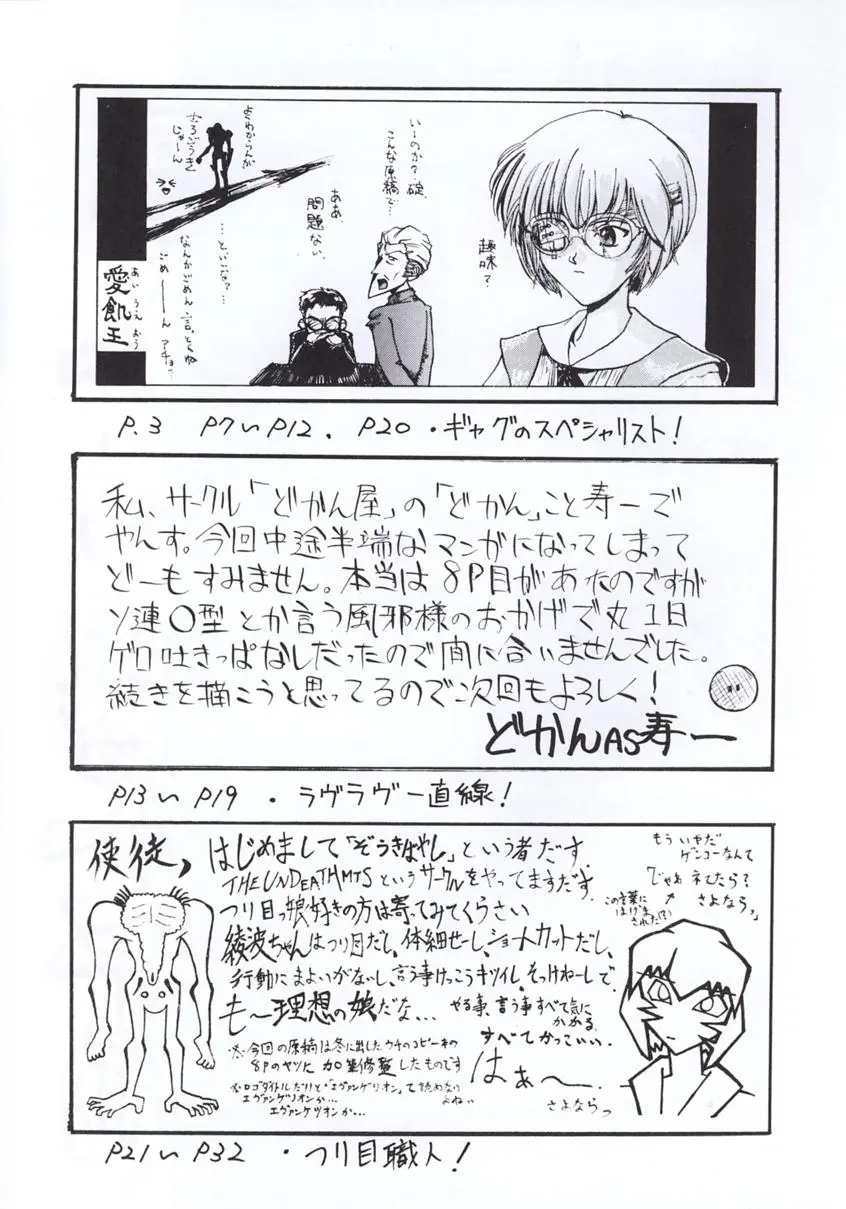 いーのか?碇、
こんな原稿で…
ああ、
問題ない。
趣味?
よくわからんが
じゃーん
…といいな?…
なんかごめん
ごめーーん
愛飢王
あいうえおう
P.3 P7〜P12. P20・ギャグのスペシャリスト!
私、サークル「どかん屋」の「どかん」こと寿一で
やんす。今回中途半端なマンガになってしまって
どーもすみません。本当は8P目があたのですが
ソ連〇型とか言う風邪様のおかげで丸1日
ゲロ吐きっぱなしだったので間に合いませんでした。
続きを描こうと思ってるので次回もよろしく!
どかんAS寿一
P13〜P19・ラヴラヴ一直線!
使徒、
はじめまして「ぞうきばやし」という者だす。
THE UNDEATHMTSというサークルをやってますだす.
つり目っ娘好きの方は寄ってみてくらさい
綾波ちゃんはつり目だし、体細せーし、ショートカットだし、
行動にまよいがないし、言う事けっこうキツイし、そっけねーしで、
も〜理想の娘だな...
やる事、言う事すべて気に
かかる.
すべてかっこいい.
はぁ〜.
※今回の原稿は冬に出したウチのコピー本の
8Pのヤツに加筆修整したものです
※ロゴタイトルだけだと・「エヴァンゲリオン」て読めない
よねぃぃ
エヴァンゲリオンか...
エヴァンケツオンか...
もういやだ
ゲンコーなんて
じゃぁネてたら?
さよならっ
この言葉に
はげま
された(?)
さよならっ
P21〜P32・つり目職人!